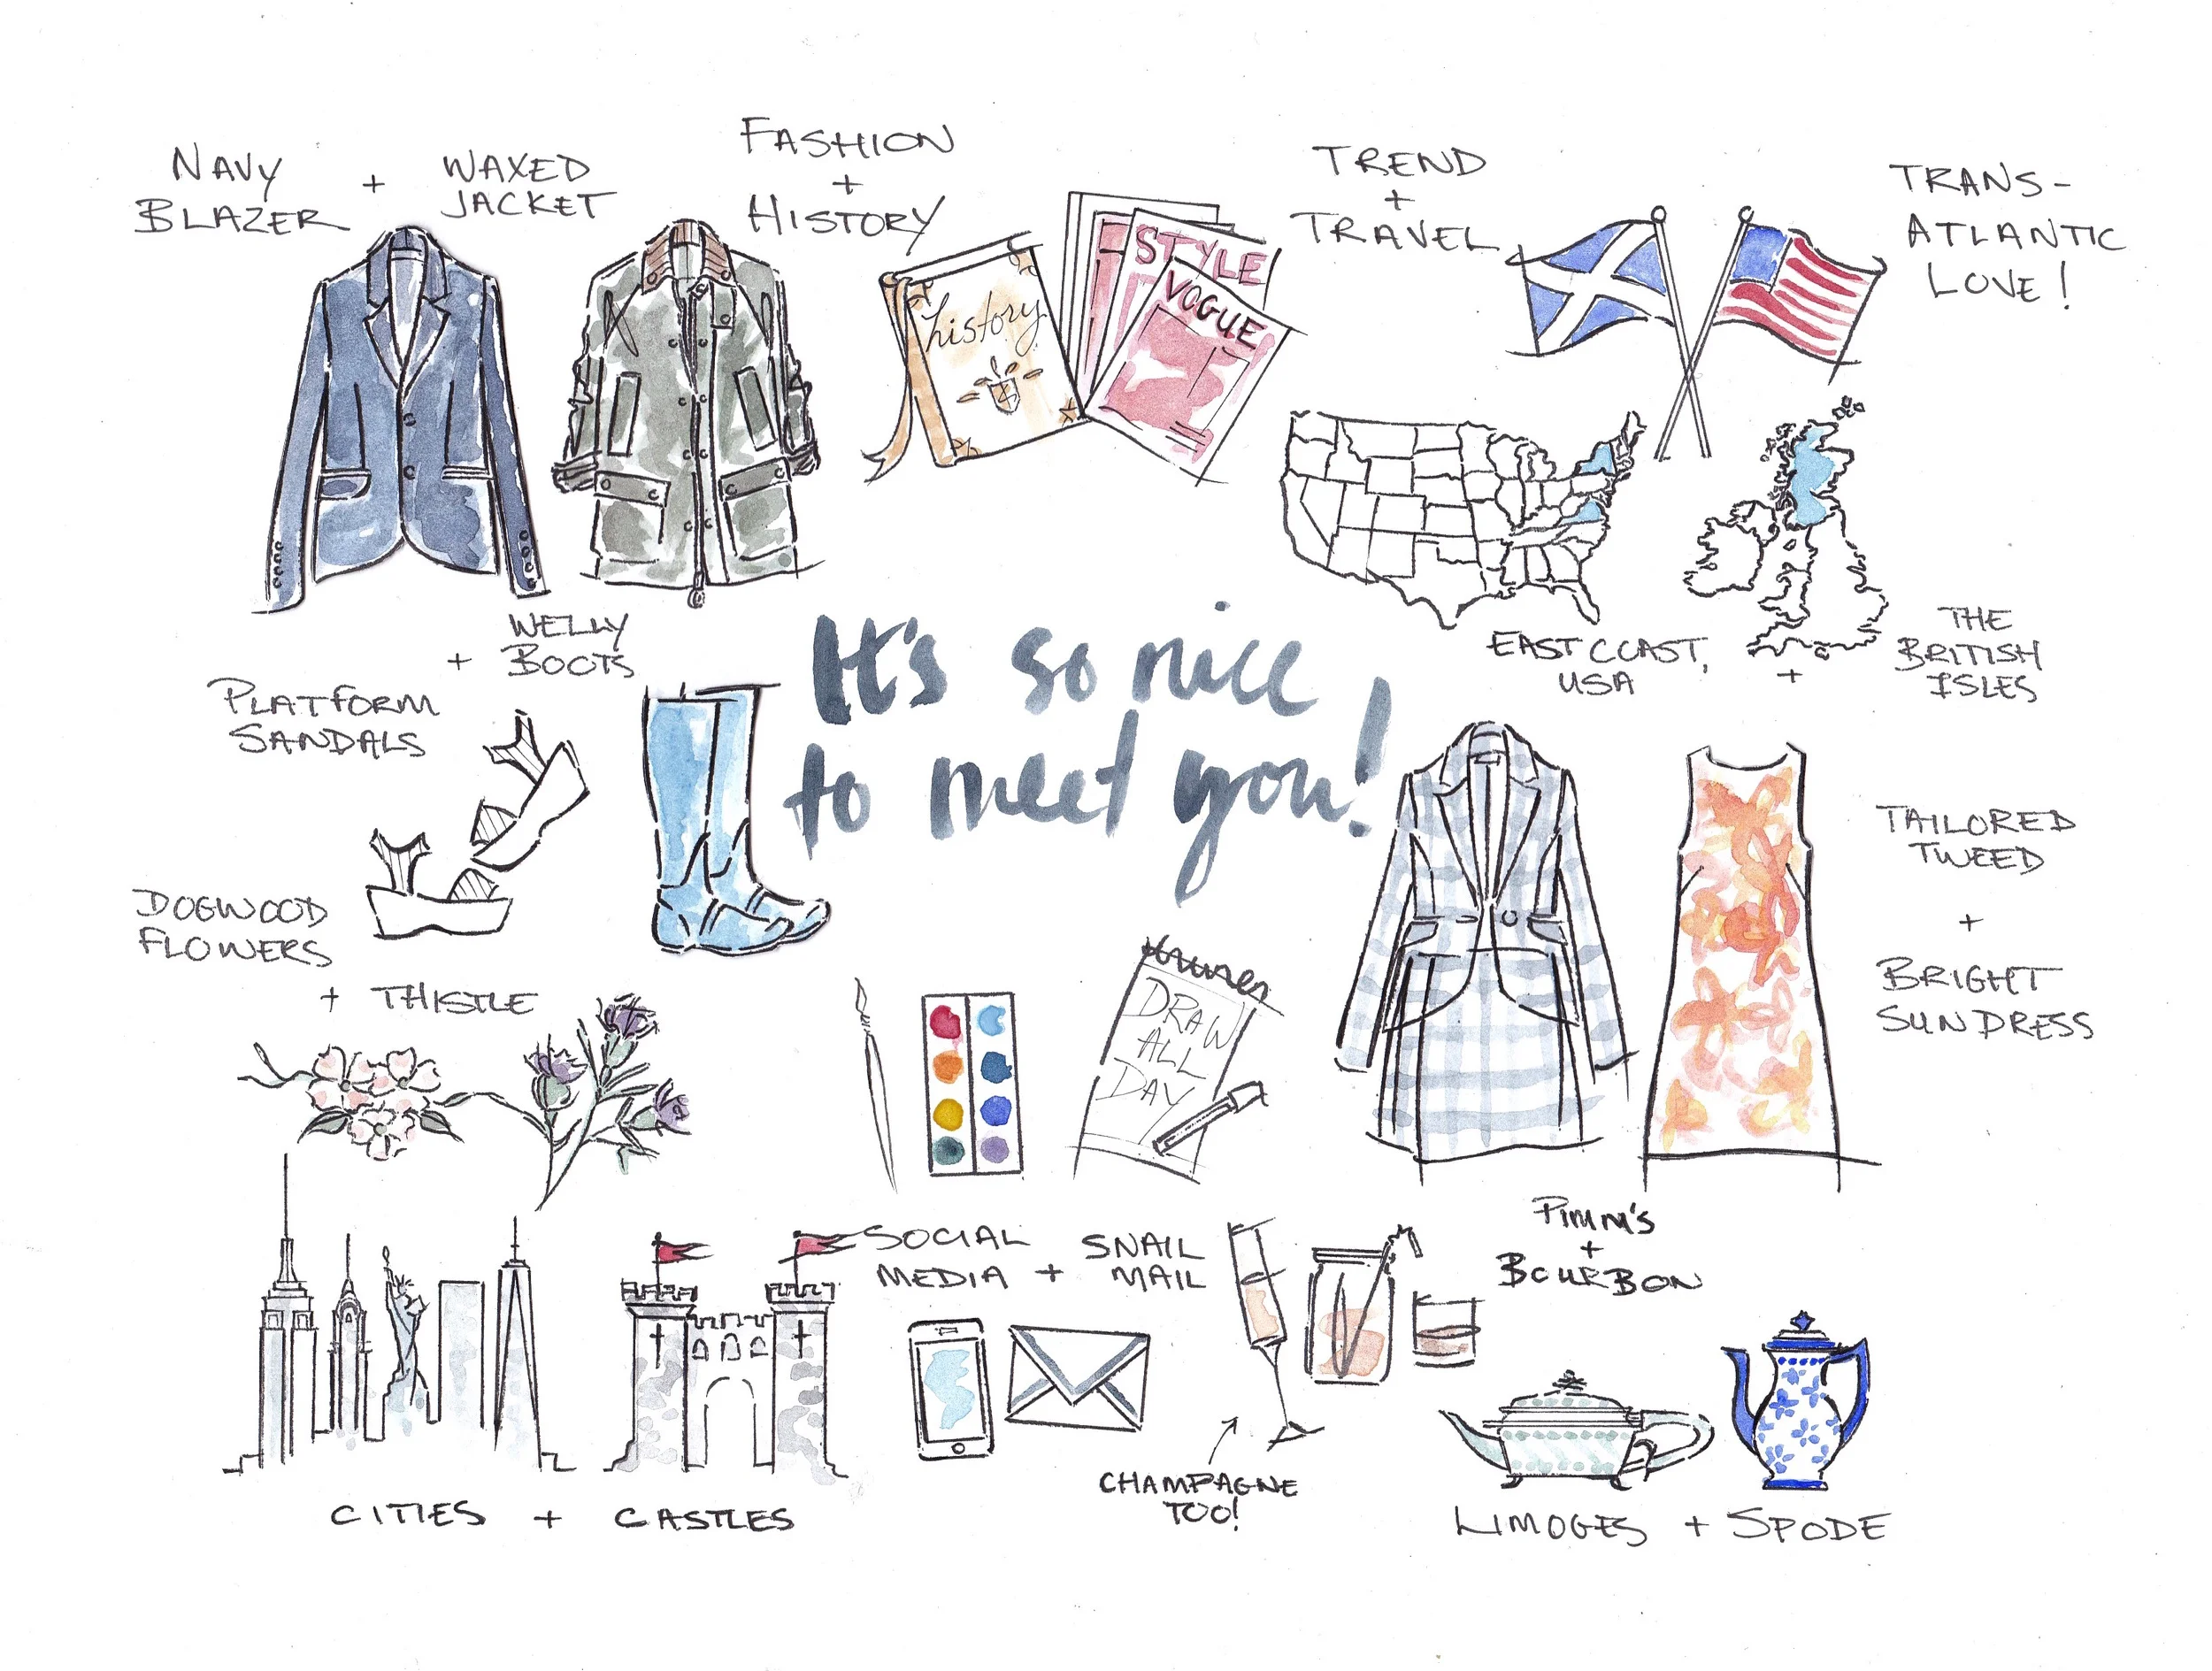 NAVY
BLAZER
+
WAXED
JACKET
FASHION
+
HISTORY
history
STYLE
VOGUE
TREND
+
TRAVEL
TRANS-
ATLANTIC
LOVE!
EAST COAST,
USA
+
THE
BRITISH
ISLES
PLATFORM
SANDALS
+
WELLY
BOOTS
It's so nice
to meet you!
TAILORED
TWEED
+
BRIGHT
SUNDRESS
DOGWOOD
FLOWERS
+ THISTLE
DRAW
ALL
DAY
SOCIAL
MEDIA
+
SNAIL
MAIL
PIMM'S
+
BOURBON
CHAMPAGNE
TOO!
CITIES + CASTLES
LIMOGES + SPODE